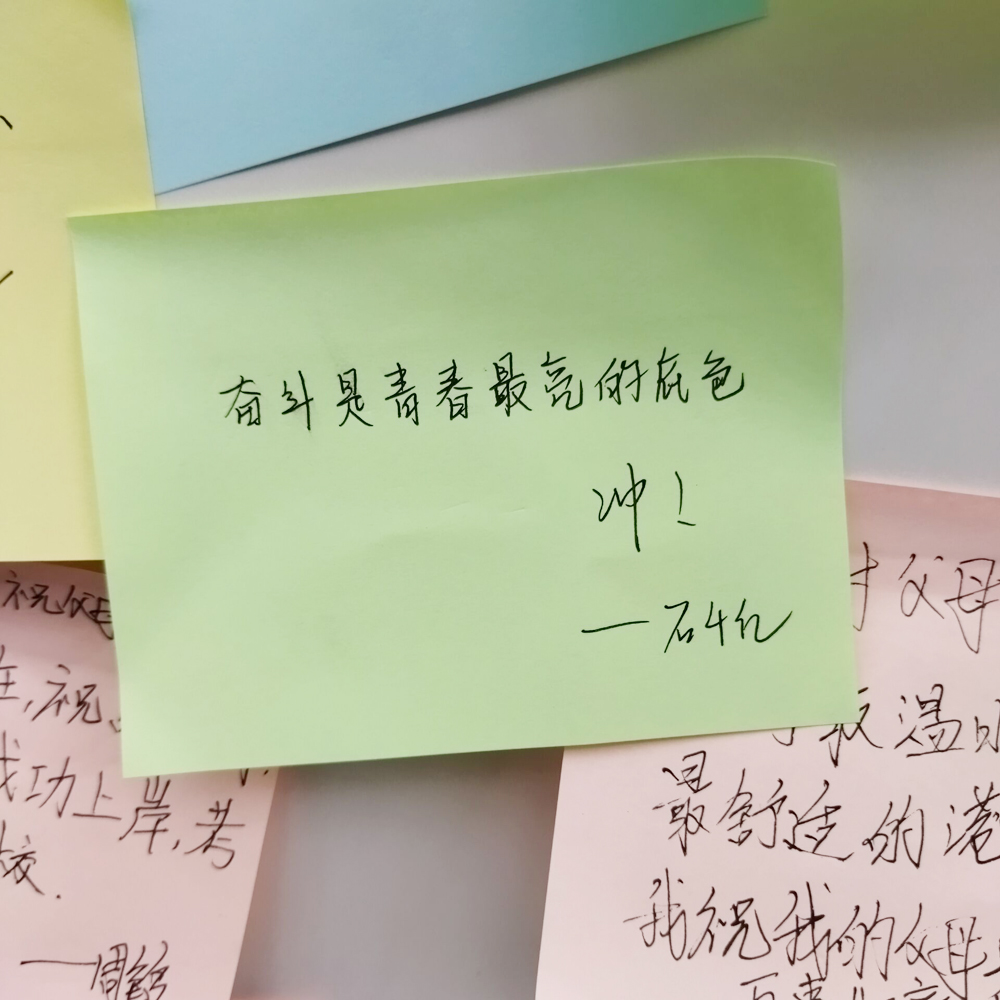 奋斗是青春最亮的底色
冲！
—石4亿
祝父母
,祝
成功上岸,考
校.
—周
父母
温
最舒适的港
我祝我的父母